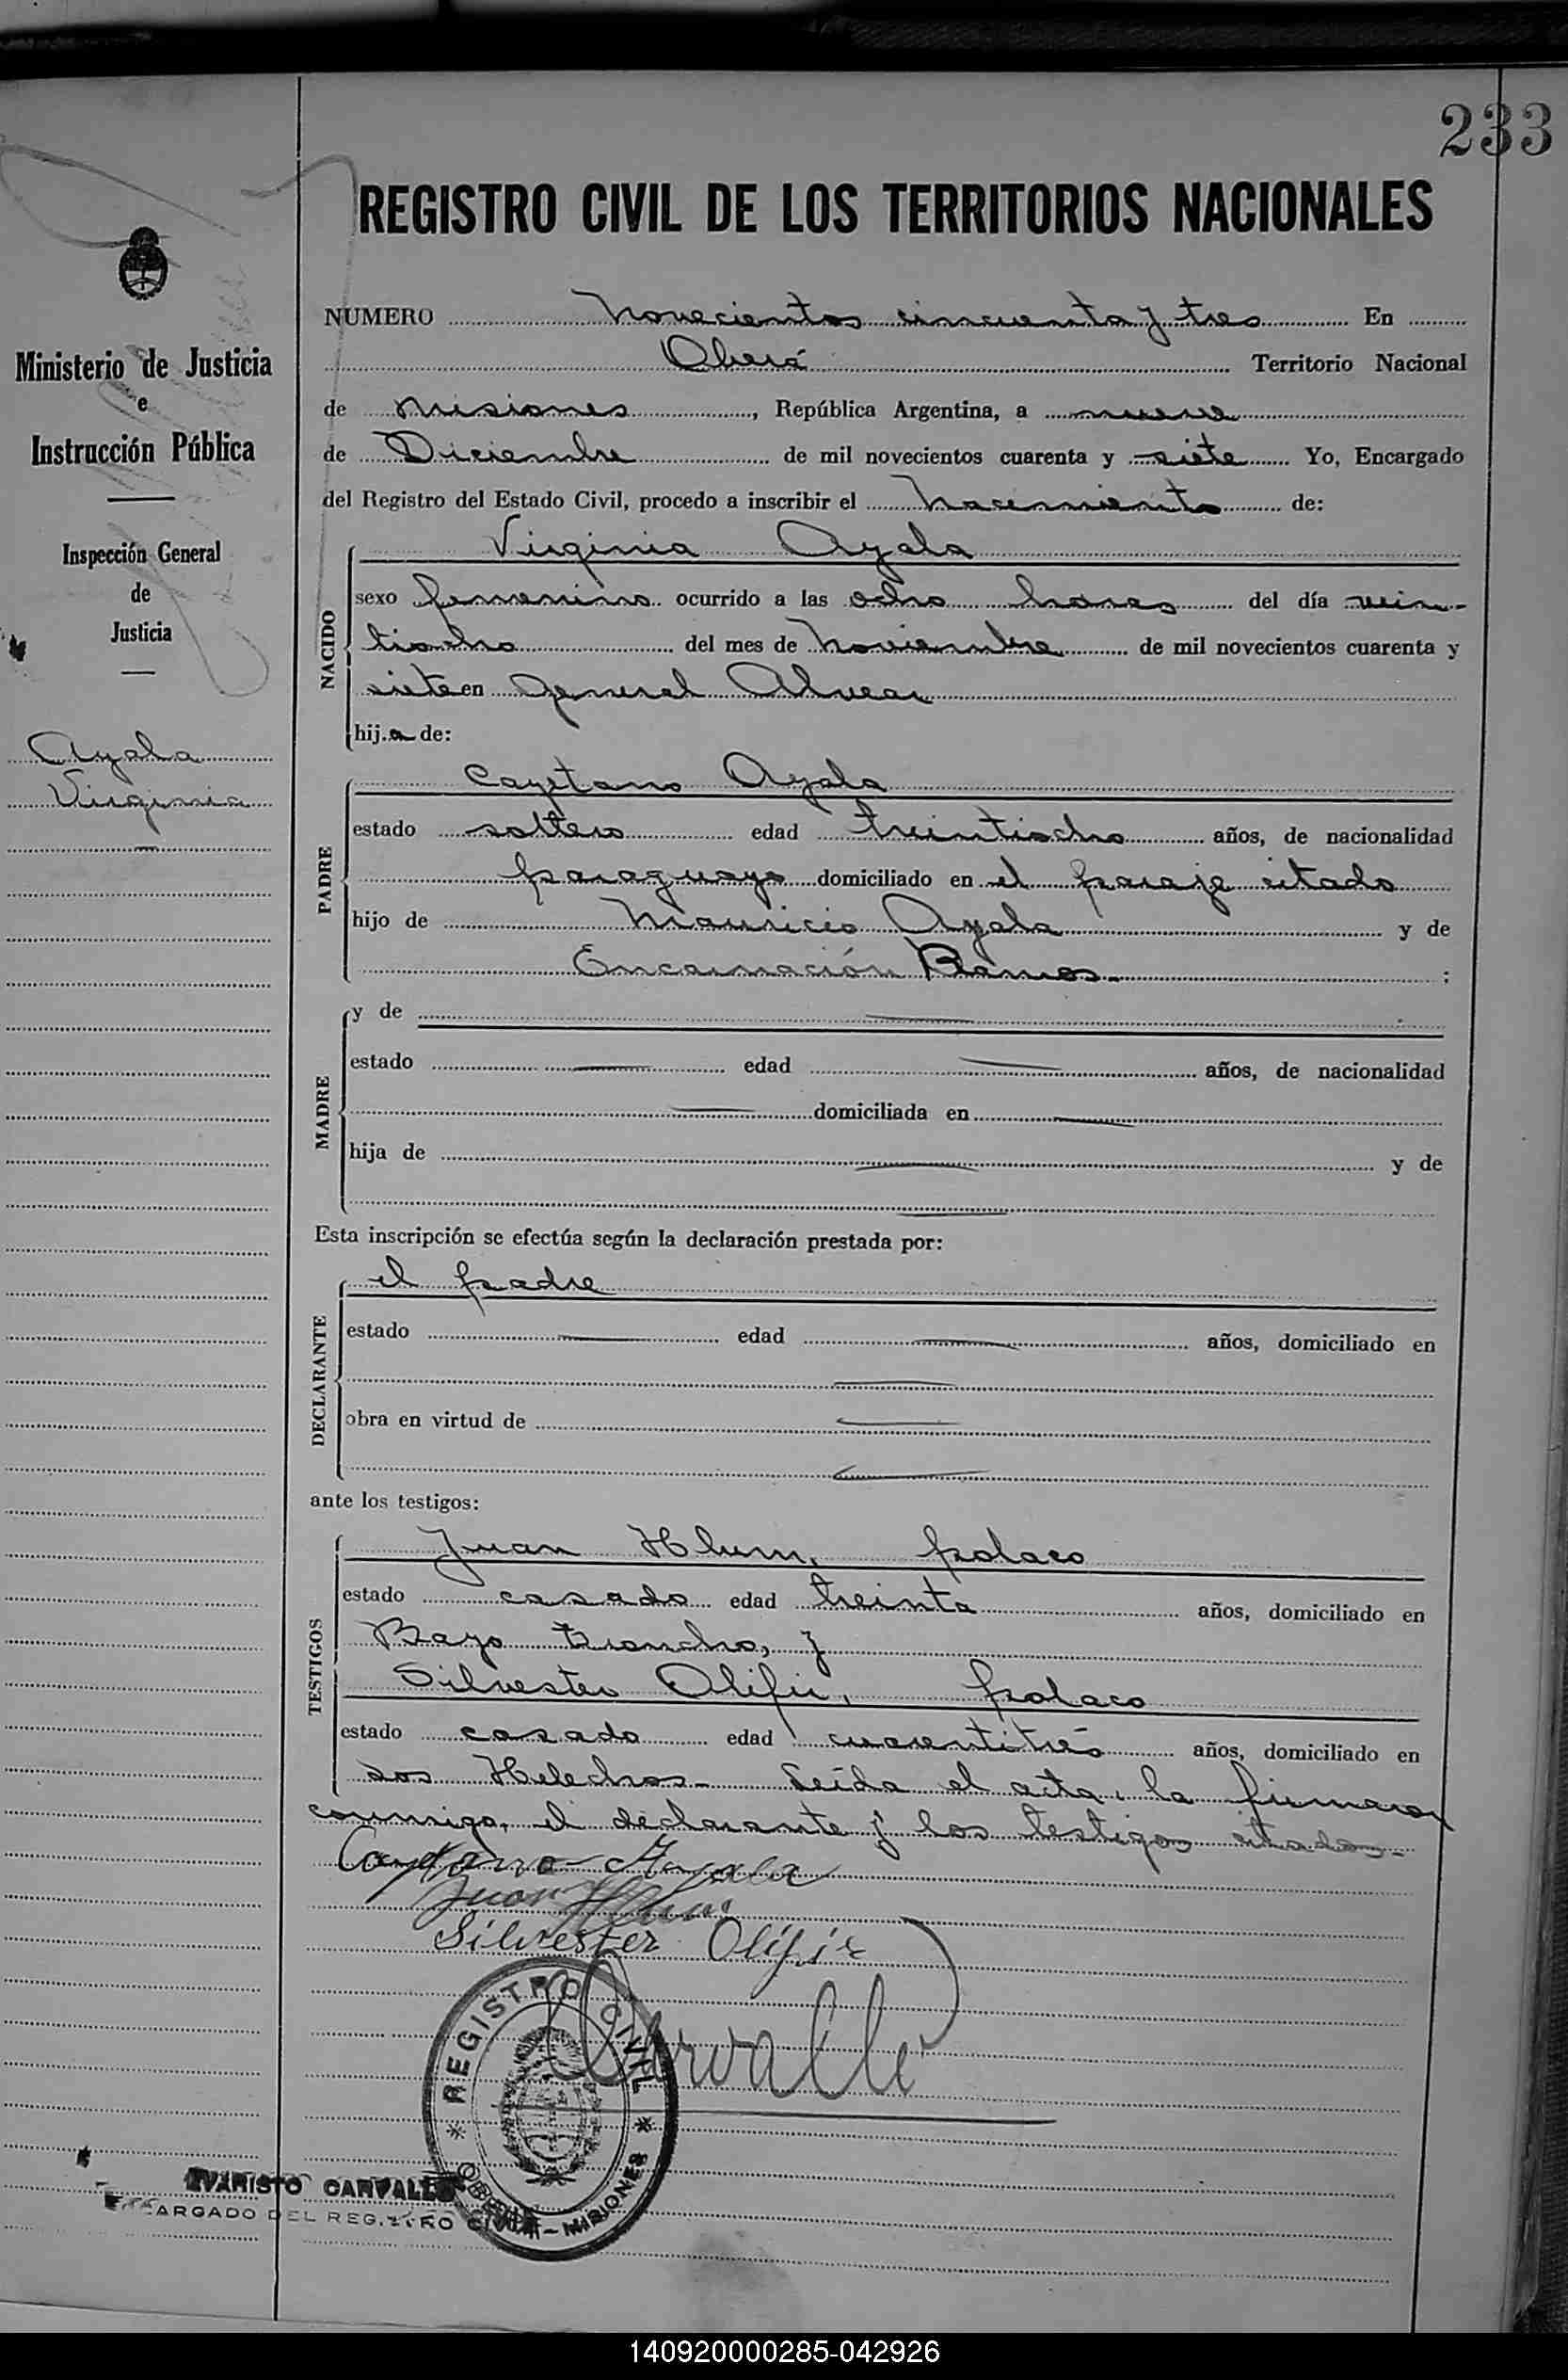 233
REGISTRO CIVIL DE LOS TERRITORIOS NACIONALES
Ministerio de Justicia
e
Instrucción Pública
Inspección General
de
Justicia
Ayala
Virginia
NUMERO Novecientos cincuenta y tres En
Oberá Territorio Nacional
de Misiones, República Argentina, a nueve
de Diciembre de mil novecientos cuarenta y siete Yo, Encargado
del Registro del Estado Civil, procedo a inscribir el Nacimiento de:
NACIDO
Virginia Ayala
sexo femenino ocurrido a las ocho horas del día vein-
tiocho del mes de Noviembre de mil novecientos cuarenta y
siete en General Alvear
hija de:
PADRE
Cayetano Ayala
estado soltero edad treintiocho años, de nacionalidad
paraguayo domiciliado en el paraje citado
hijo de Mauricio Ayala y de
Encarnación Ramos ;
MADRE
y de
estado edad años, de nacionalidad
domiciliada en
hija de y de
Esta inscripción se efectúa según la declaración prestada por:
DECLARANTE
el padre
estado edad años, domiciliado en
obra en virtud de
ante los testigos:
TESTIGOS
Juan Hlum, polaco
estado casado edad treinta años, domiciliado en
Bayo troncho, y
Silvester Olifir, polaco
estado casado edad cuarentitrés años, domiciliado en
Los Helechos - Leída el acta, la firmaron
conmigo, el declarante y los testigos citados.-
Caytano Ayala
Juan Hlum
Silvester Olifir
Carvallo
REGISTRO CIVIL
OBERÁ - MISIONES
EVARISTO CARVALLO
ENCARGADO DEL REGISTRO CIVIL
140920000285-042926